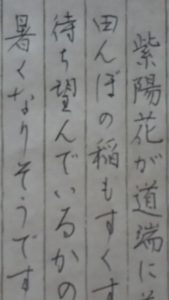 紫陽花が道端に
田んぼの稲もすくす
待ち望んでいるかの
暑くなりそうです